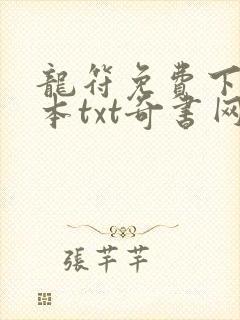 龍符免費下
本txt奇書网
張芊芊